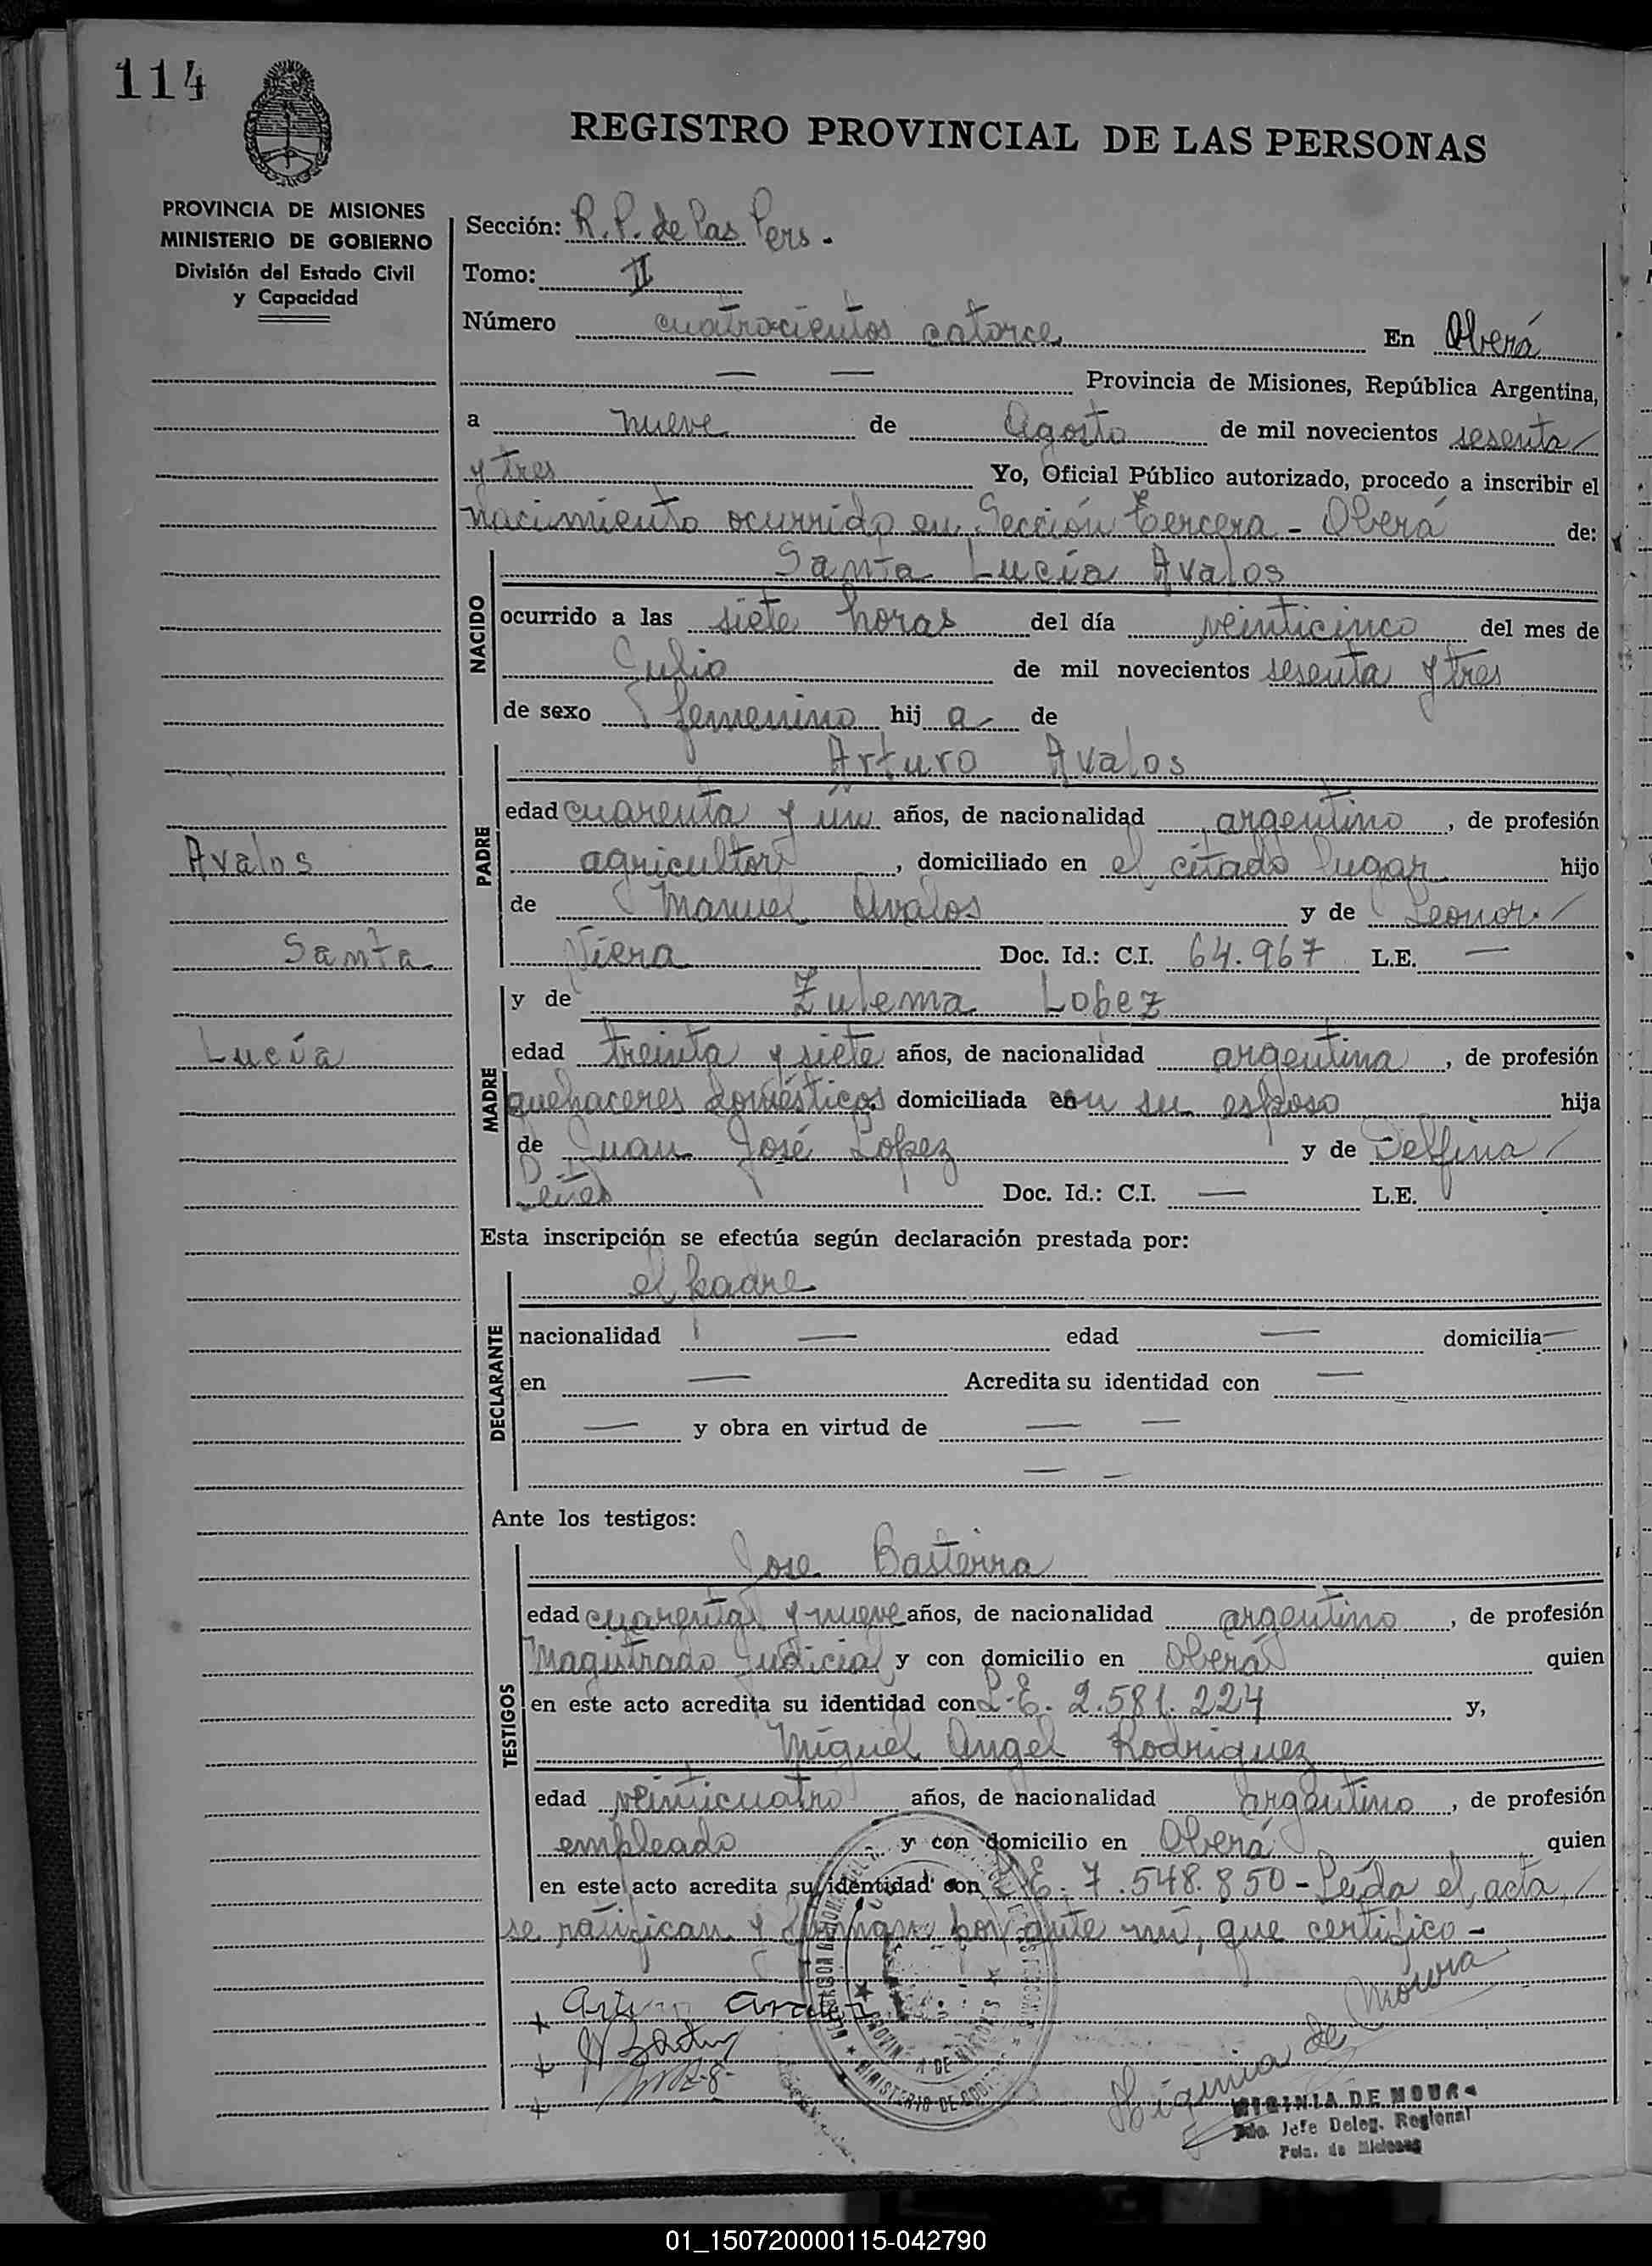 114
REGISTRO PROVINCIAL DE LAS PERSONAS
PROVINCIA DE MISIONES
MINISTERIO DE GOBIERNO
División del Estado Civil
y Capacidad
Sección: R. P. de las Pers.
Tomo: II
Número cuatrocientos catorce En Oberá
— — Provincia de Misiones, República Argentina,
a nueve de Agosto de mil novecientos sesenta /
y tres Yo, Oficial Público autorizado, procedo a inscribir el
nacimiento ocurrido en Sección tercera - Oberá de:
NACIDO
Santa Lucía Avalos
ocurrido a las siete horas del día veinticinco del mes de
Julio de mil novecientos sesenta y tres
de sexo femenino hij a de
PADRE
Arturo Avalos
edad cuarenta y un años, de nacionalidad argentino, de profesión
agricultor, domiciliado en el citado lugar hijo
de Manuel Avalos y de Leonor /
Viera Doc. Id.: C.I. 64.967 L.E. —
Avalos
Santa
Lucía
MADRE
y de Zulema Lopez
edad treinta y siete años, de nacionalidad argentina, de profesión
quehaceres domésticos domiciliada en su esposo hija
de Juan José Lopez y de Delfina /
Doc. Id.: C.I. — L.E.
Esta inscripción se efectúa según declaración prestada por:
DECLARANTE
el padre
nacionalidad — edad — domicilia —
en — Acredita su identidad con —
— y obra en virtud de — —
— —
Ante los testigos:
TESTIGOS
Jose Basterra
edad cuarenta y nueve años, de nacionalidad argentino, de profesión
Magistrado Judicial y con domicilio en Oberá quien
en este acto acredita su identidad con L.E. 2.581.224 y,
Miguel Angel Rodriguez
edad veinticuatro años, de nacionalidad argentino, de profesión
empleado y con domicilio en Oberá quien
en este acto acredita su identidad con L.E. 7.548.850 - Leída el acta, /
se ratifican y firman por ante mí, que certifico -
Arturo Avalos
Higinia de Moura
HIGINIA DE MOURA
2do. Jefe Deleg. Regional
Pcia. de Misiones
01_150720000115-042790